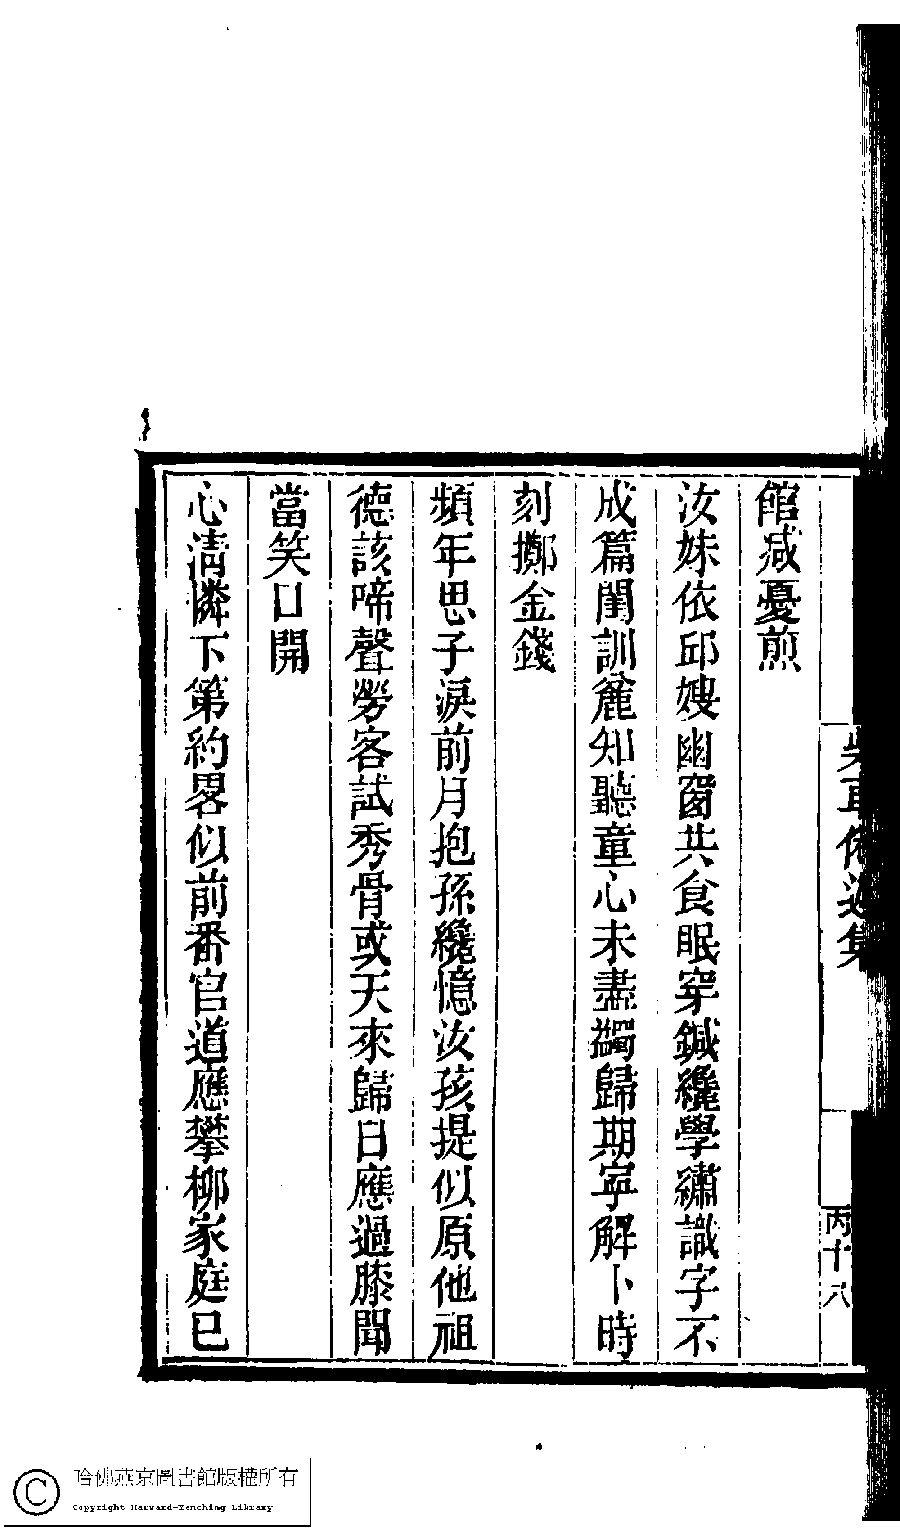 館减憂煎
汝妹依邱嫂幽窗共食眠穿鍼纔學繡識字不
成篇閨訓麄知聽童心未盡蠲歸期寧解卜時
刻擲金錢
頻年思子淚前月抱孫纔憶汝孩提似原他祖
德該啼聲勞客試秀骨或天來歸日應過膝聞
當笑口開
心淸憐下第約畧似前番官道應攀柳家庭已
丙十八
哈佛燕京圖書館版權所有
Copyright Harvard-Yenching Library